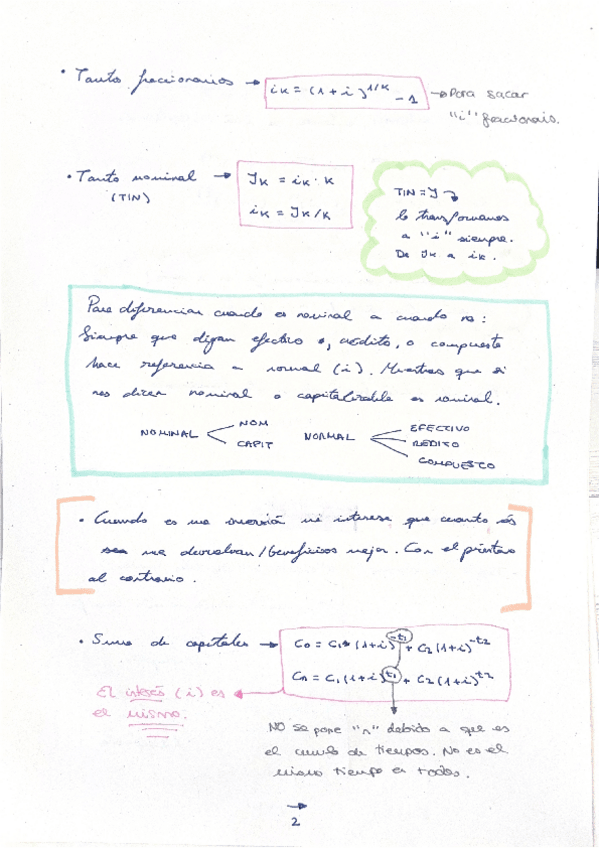 • Tanto fraccionarios → iк = (1+i)^1/к - 1 → Para sacar
"i" fraccionais.
• Tanto nominal → Jк = iк · к
(TIN)
iк = Jк/к
TIN = J
lo transformamos
a "i" siempre.
De Jк a iк.
Para diferenciar cuando es nominal a cuando no:
Siempre que digan efectivo, rédito, o compuesto
hace referencia a normal (i). Mientras que si
nos dicen nominal o capitalizable es nominal.
NOMINAL NOM CAPIT
NORMAL EFECTIVO REDITO COMPUESTO
• Cuando es una inversión mi interese que cuanto más
me devuelvan/beneficios mejor. Con el préstamo
al contrario.
• Suma de capitales → C0 = C1 (1+i)^-t1 + C2 (1+i)^-t2
Cn = C1 (1+i)^t1 + C2 (1+i)^t2
El interés (i) es
el mismo.
NO se pone "n" debido a que es
el cumulo de tiempos. No es el
mismo tiempo en todos.
→
2